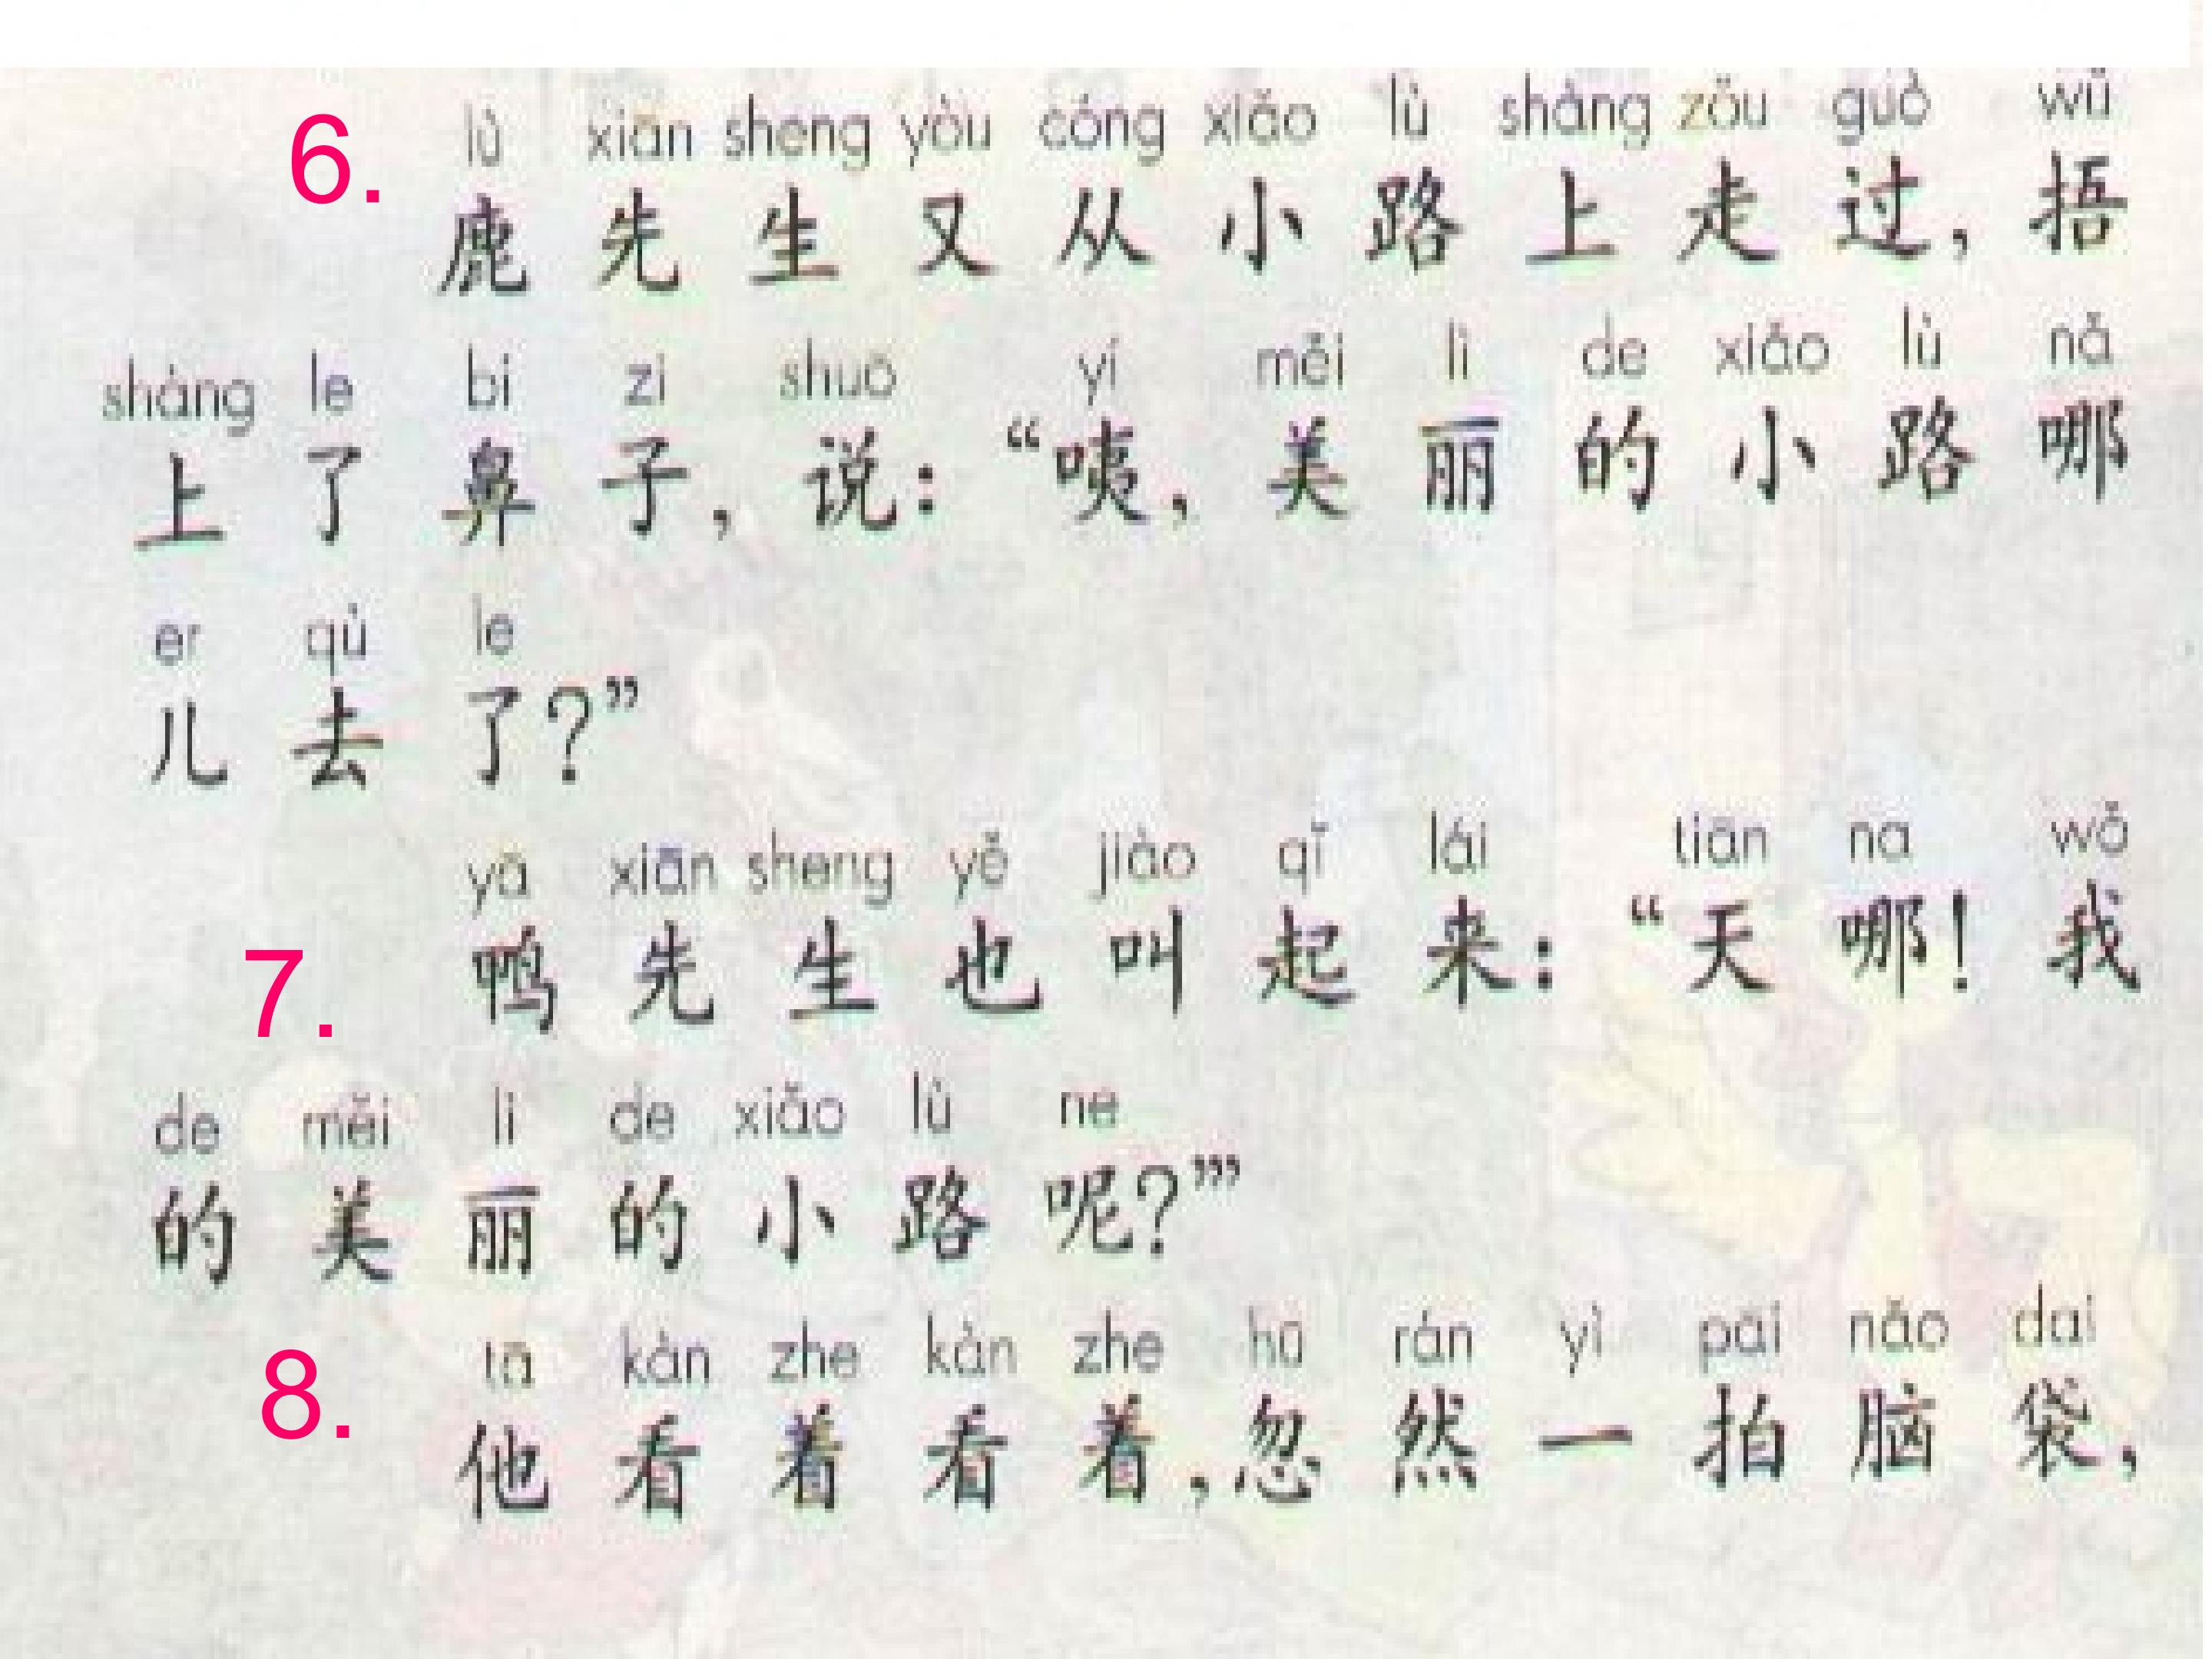 lù xiān sheng yòu cóng xiǎo lù shàng zǒu guò wǔ
6. 鹿先生又从小路上走过，捂
shàng le bí zi shuō yí měi lì de xiǎo lù nǎ
上了鼻子，说：“咦，美丽的小路哪
er qù le
儿去了？”
yā xiān sheng yě jiào qǐ lái tiān na wǒ
7. 鸭先生也叫起来：“天哪！我
de měi lì de xiǎo lù ne
的美丽的小路呢？’”
tā kàn zhe kàn zhe hū rán yì pāi nǎo dai
8. 他看着看着，忽然一拍脑袋，